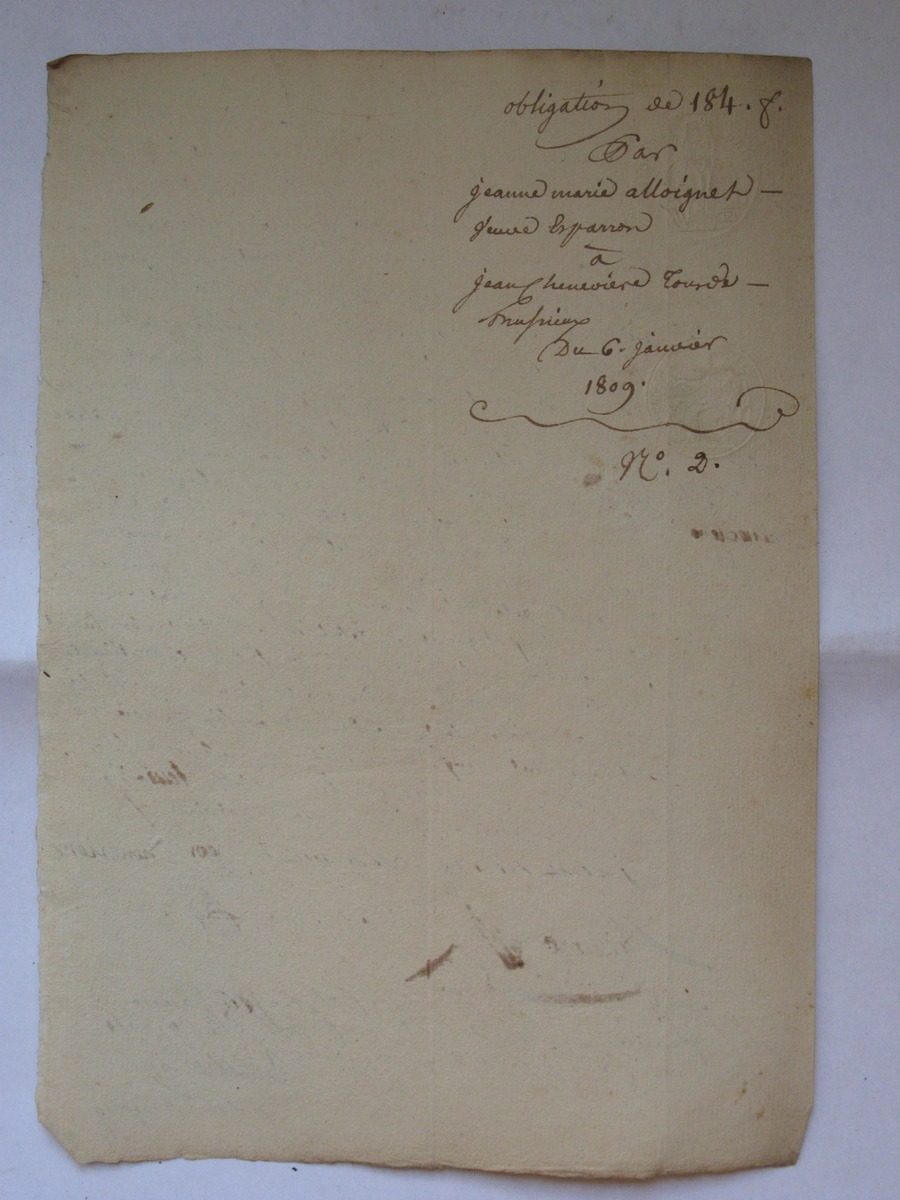 obligation de 184. f.
Par
jeanne marie alloignet —
veuve Esparron
à
jean Chenevière Tour de —
Du 6. janvier
1809.
N°. 2.